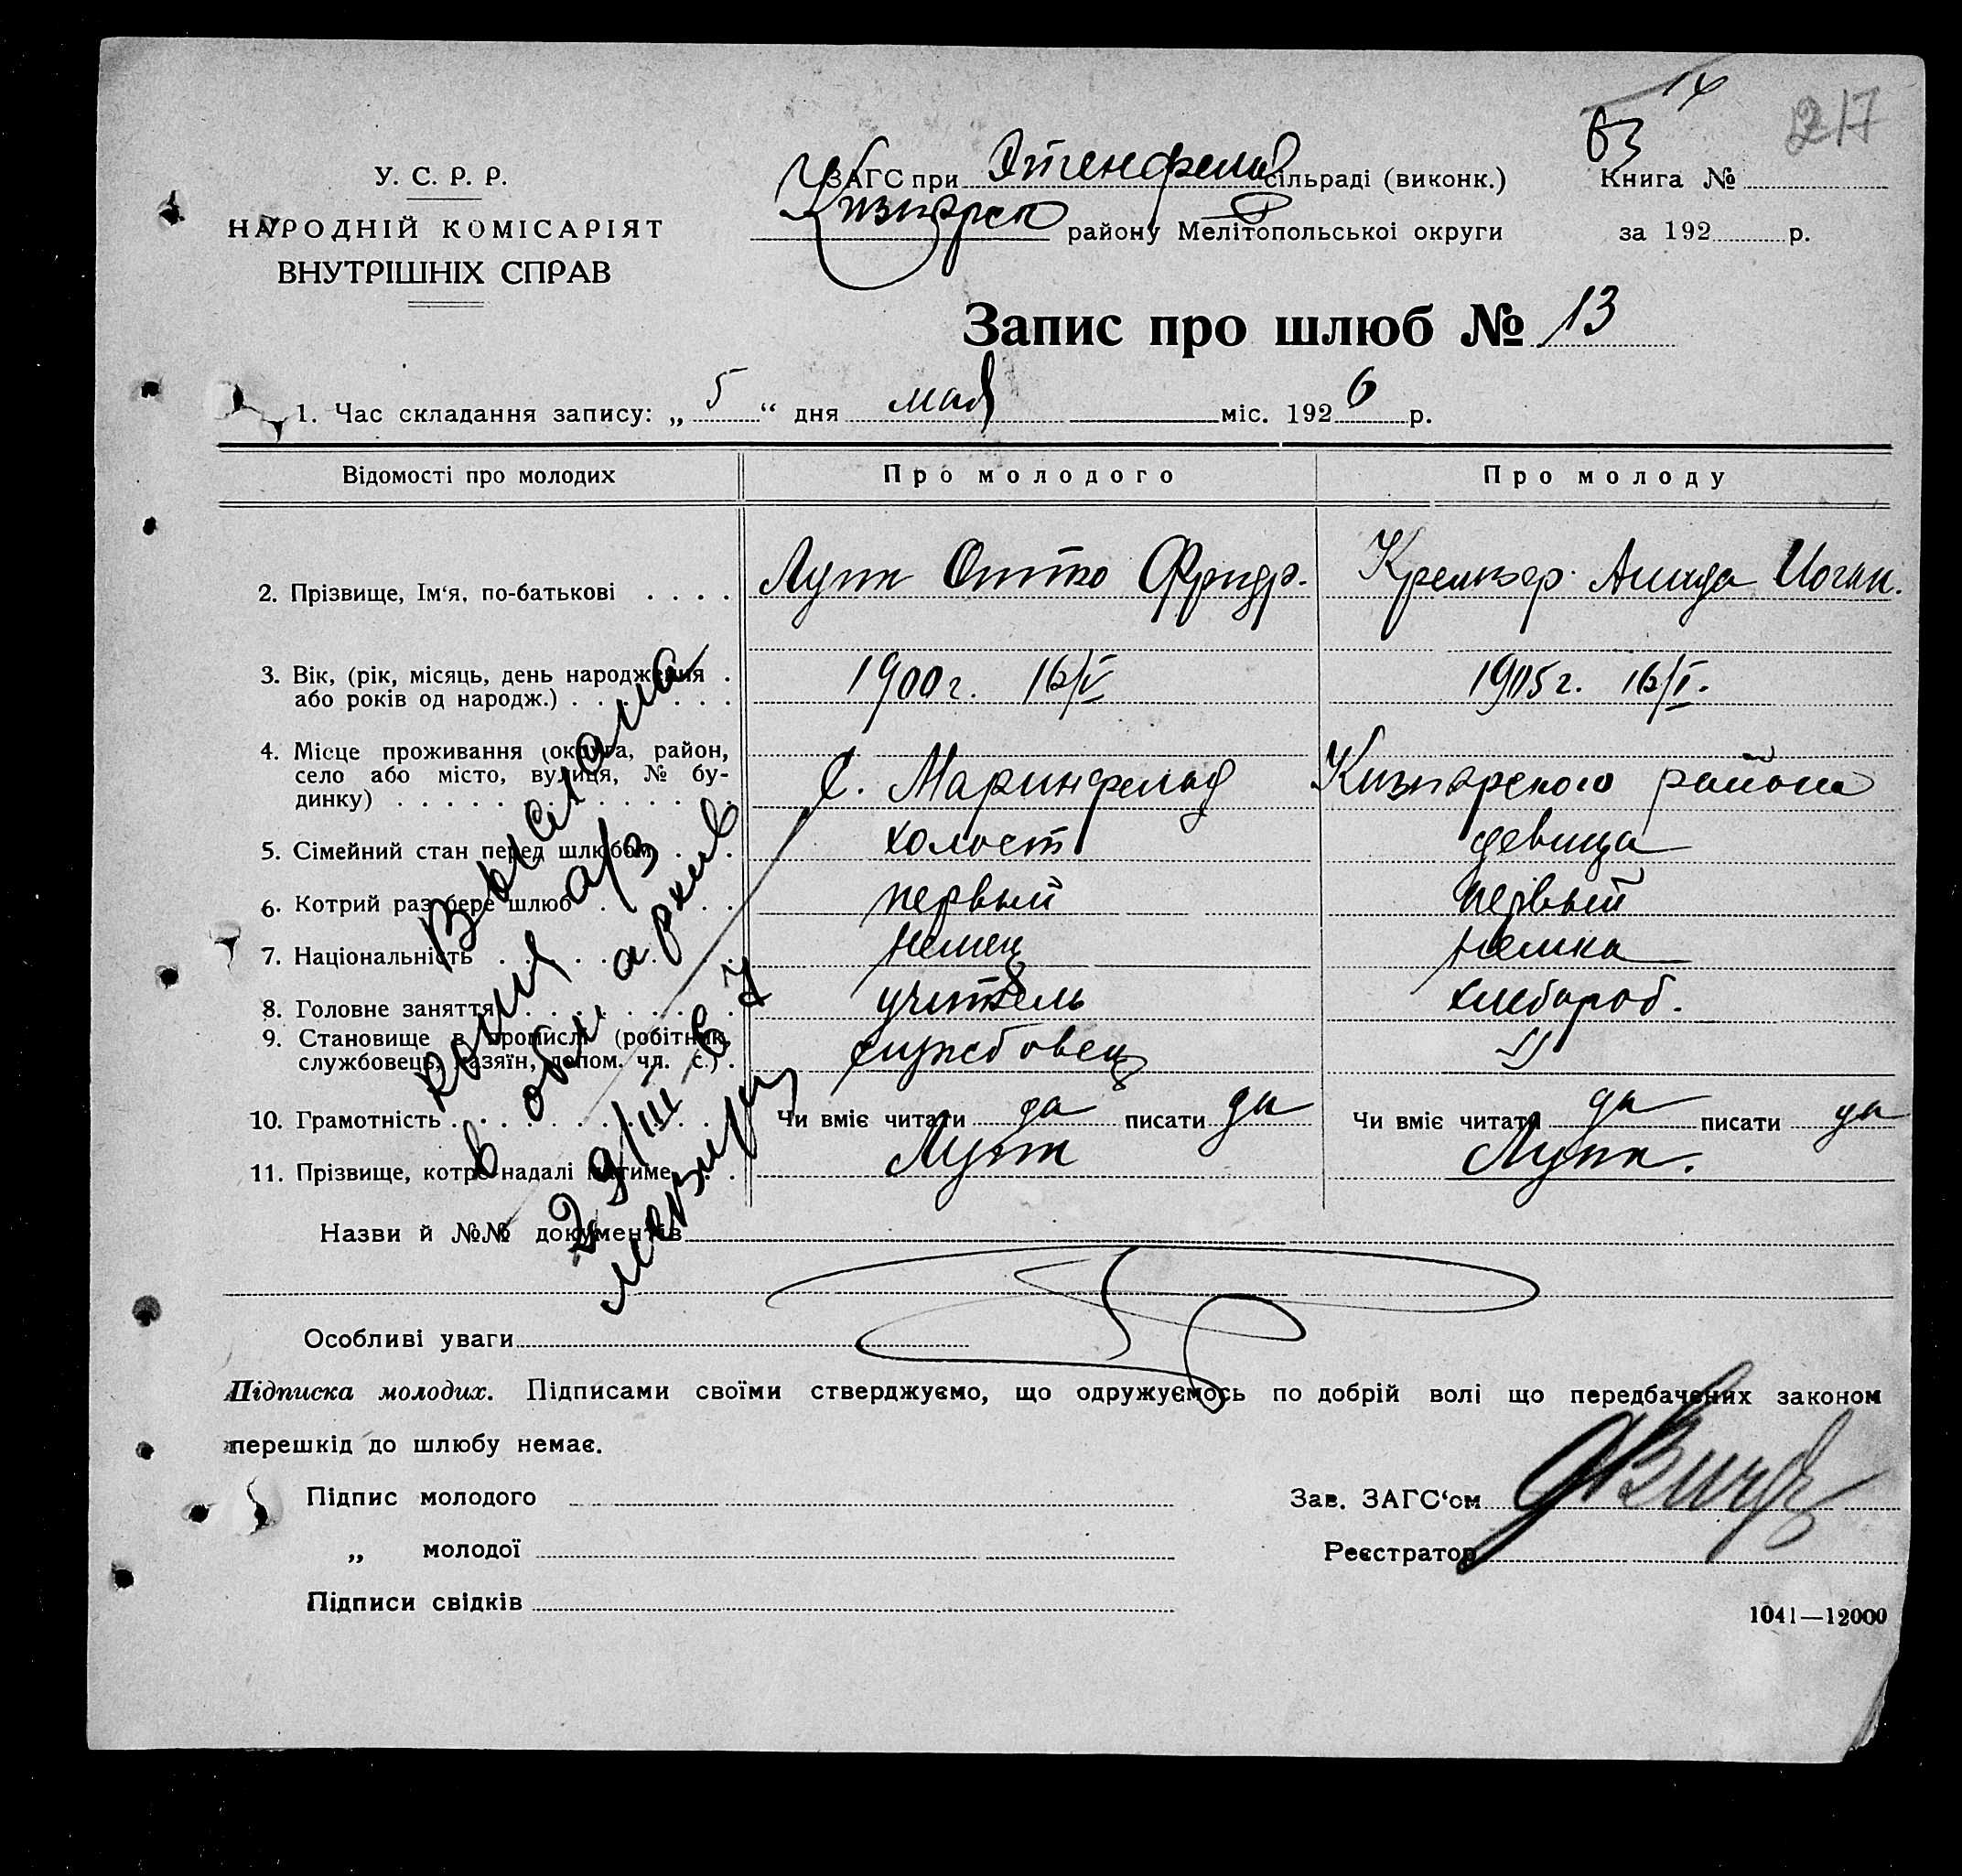 14
217
63
У. С. Р. Р.
НАРОДНІЙ КОМІСАРІЯТ
ВНУТРІШНІХ СПРАВ
ЗАГС при Этенфельд сільраді (виконк.)
Книга №
Кизиярск району Мелітопольської округи
за 192 р.
Запис про шлюб № 13
1. Час складання запису: „ 5 “ дня мая міс. 1926 р.
Відомості про молодих
Про молодого
Про молоду
2. Прізвище, Ім‘я, по-батькові
Лутт Отто Фридр.
Аинда Иоган.
3. Вік, (рік, місяць, день народження
або років од народж.)
1900 г. 16/V
1905 г. 16/I.
4. Місце проживання (округа, район,
село або місто, вулиця, № бу-
динку)
С. Маринфельд
Кизиярского района
5. Сімейний стан перед шлюбом
холост
девица
6. Котрий раз бере шлюб
первый
первый
7. Національність
немец
немка
8. Головне заняття
учитель
хлебороб.
9. Становище в промислі (робітник,
службовець, хазяїн, допом. чл. с.)
службовец
〃
10. Грамотність
Чи вміє читати да писати да
Чи вміє читати да писати да
11. Прізвище, котре надалі матиме
Лутт
Лутт.
Выслана
копия а/з
в обл. архив
29/III-67
Назви й №№ документів
Особливі уваги
Підписка молодих. Підписами своїми стверджуємо, що одружуємось по добрій волі що передбачених законом
перешкід до шлюбу немає.
Підпис молодого
Зав. ЗАГС‘ом
„ молодої
Реєстратор
Підписи свідків
1041—12000